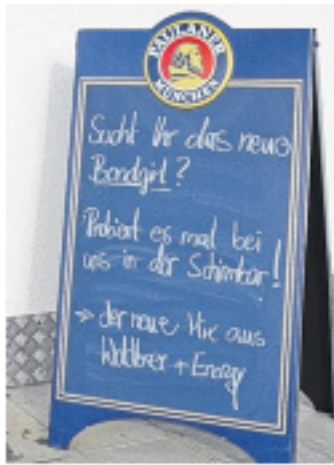 PAULANER
MÜNCHEN
Sucht Ihr das neue
Bondgirl?
Probiert es mal bei
uns in der Schirmbar!
→ der neue Mix aus
+ Energy